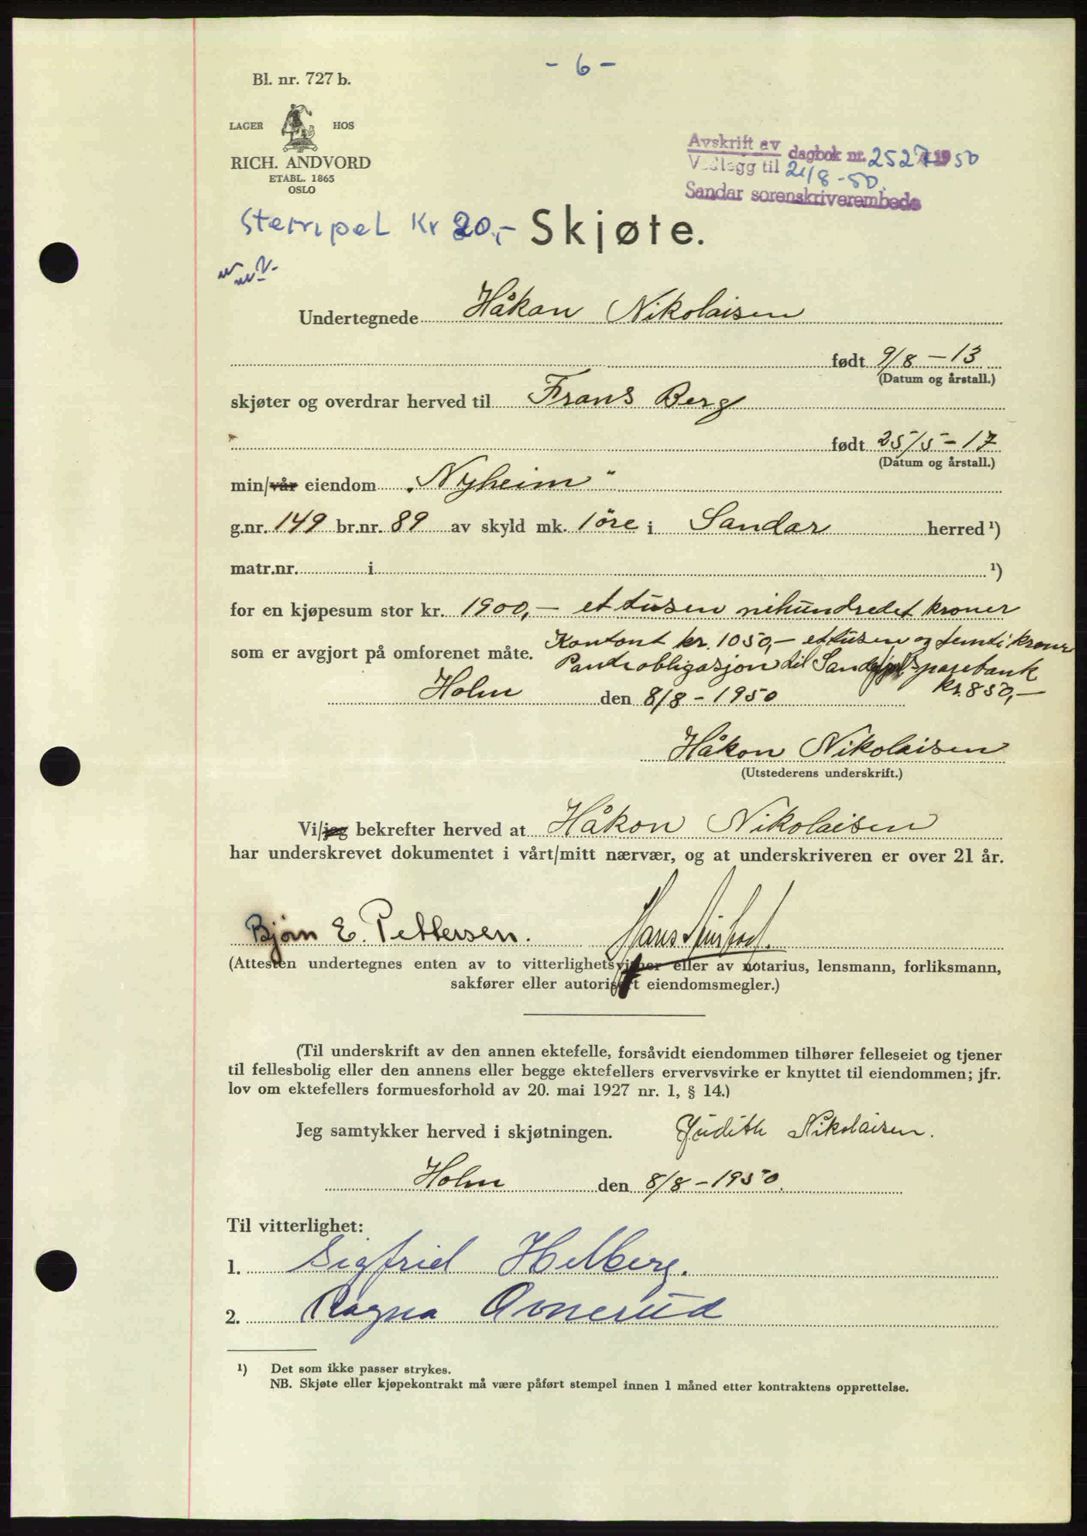 - 6 -
Bl. nr. 727 b.
LAGER HOS
RICH. ANDVORD
ETABL. 1865
OSLO
Avskrift av dagbok nr. 2527 1950
Vedlegg til 21/8-50.
Sandar sorenskriverembede
Stempel Kr 20,- Skjøte.
Undertegnede Håkon Nikolaisen
født 9/8-13
(Datum og årstall.)
skjøter og overdrar herved til Frans Berg
født 25/5-17
(Datum og årstall.)
min/vår eiendom „Nyheim"
g.nr. 149 br.nr. 89 av skyld mk. 1 øre i Sandar herred ¹)
matr.nr. i ¹)
for en kjøpesum stor kr. 1900,- et tusen nihundredet kroner
som er avgjort på omforenet måte. Kontant kr. 1050,- ettusen og femti kroner
Pantobligasjon til Sandefjords sparebank
kr. 850,-
Holm den 8/8-1950
Håkon Nikolaisen
(Utstederens underskrift.)
Vi/jeg bekrefter herved at Håkon Nikolaisen
har underskrevet dokumentet i vårt/mitt nærvær, og at underskriveren er over 21 år.
Bjørn E. Pettersen. Hans
(Attesten undertegnes enten av to vitterlighetsvitner eller av notarius, lensmann, forliksmann,
sakfører eller autorisert eiendomsmegler.)
(Til underskrift av den annen ektefelle, forsåvidt eiendommen tilhører felleseiet og tjener
til fellesbolig eller den annens eller begge ektefellers ervervsvirke er knyttet til eiendommen; jfr.
lov om ektefellers formuesforhold av 20. mai 1927 nr. 1, § 14.)
Jeg samtykker herved i skjøtningen. Judith Nikolaisen.
Holm den 8/8-1950.
Til vitterlighet:
1. Sigfried Helberg.
2. Ragna Ovnerud
¹) Det som ikke passer strykes.
NB. Skjøte eller kjøpekontrakt må være påført stempel innen 1 måned etter kontraktens opprettelse.